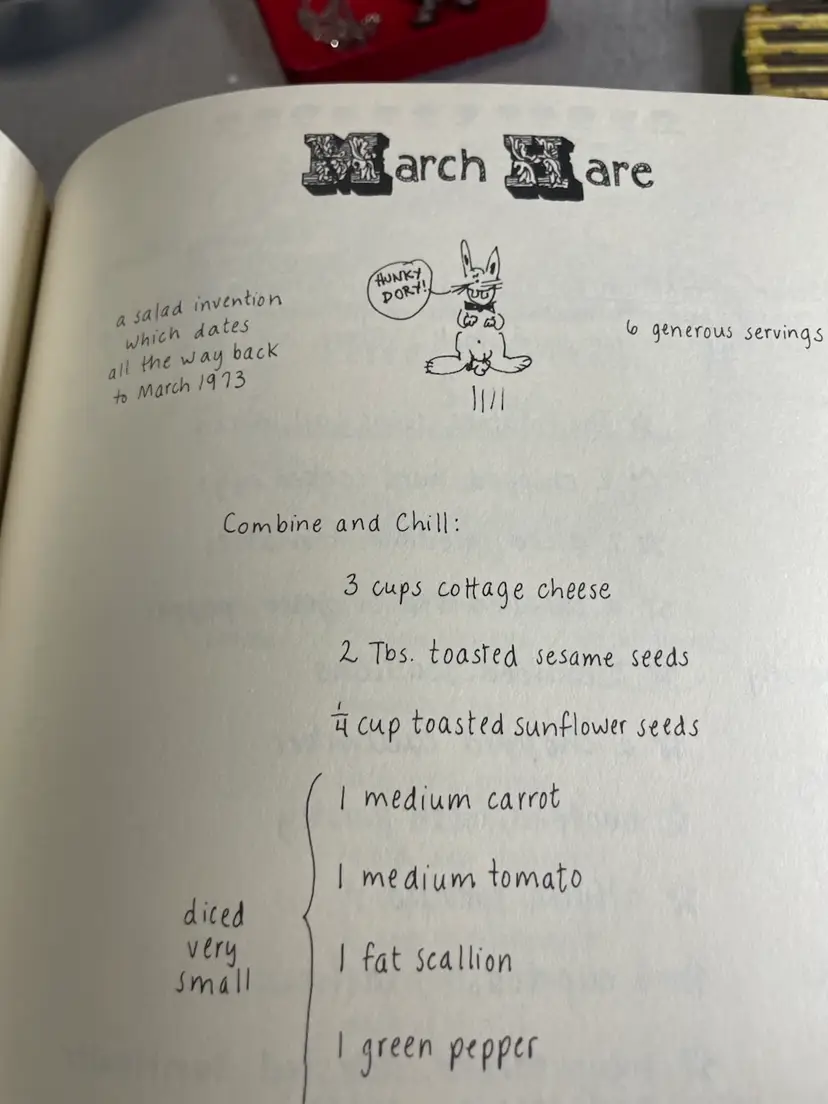 March Hare
HUNKY
DORY!
a salad invention
which dates
all the way back
to March 1973
6 generous servings
Combine and Chill:
3 cups cottage cheese
2 Tbs. toasted sesame seeds
1/4 cup toasted sunflower seeds
1 medium carrot
1 medium tomato
diced
very
small
1 fat scallion
1 green pepper